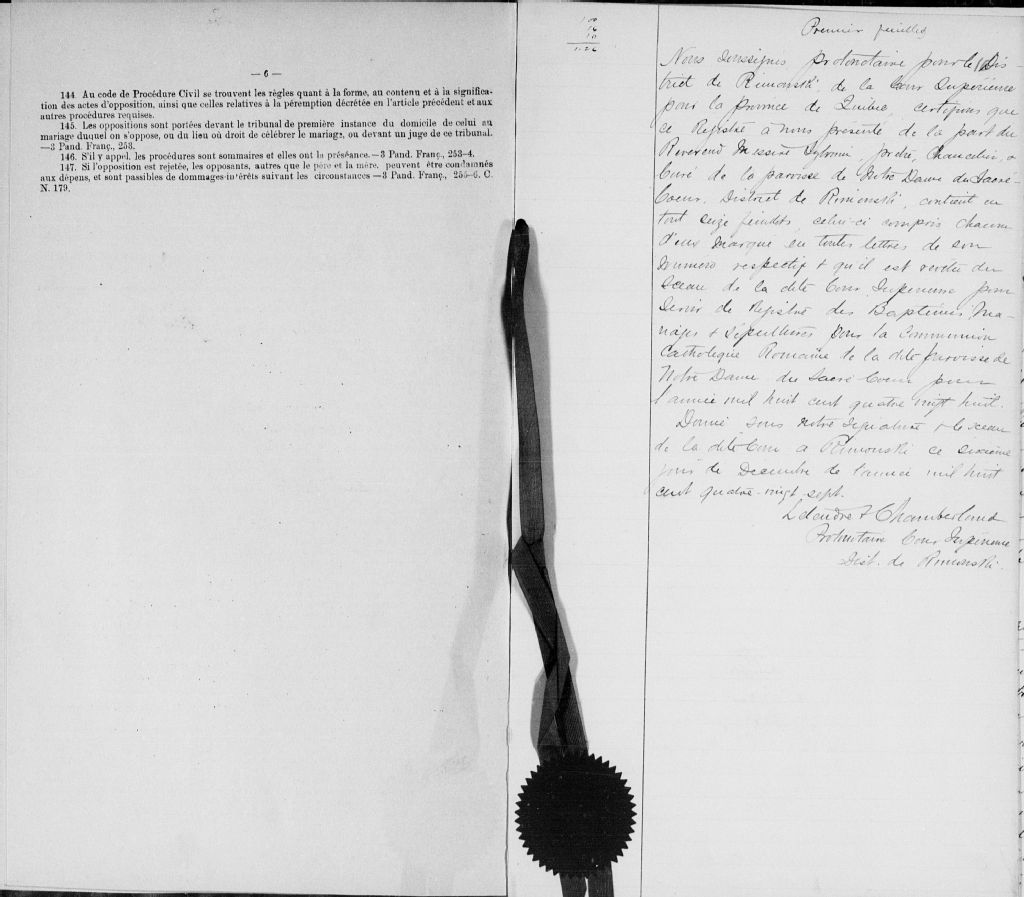 — 6 —
144. Au code de Procédure Civil se trouvent les règles quant à la forme, au contenu et à la significa-
tion des actes d'opposition, ainsi que celles relatives à la péremption décrétée en l'article précédent et aux
autres procédures requises.
145. Les oppositions sont portées devant le tribunal de première instance du domicile de celui au
mariage duquel on s'oppose, ou du lieu où droit de célébrer le mariage, ou devant un juge de ce tribunal.
—3 Pand. Franç., 253.
146. S'il y appel, les procédures sont sommaires et elles ont la préséance.—3 Pand. Franç., 253-4.
147. Si l'opposition est rejetée, les opposants, autres que le père et la mère, peuvent être condamnés
aux dépens, et sont passibles de dommages-intérêts suivant les circonstances—3 Pand. Franç., 255-6. C.
N. 179.
1 00
16
10
1.26
Premier feuillet
Nous soussigné, protonotaire pour le Dis-
trict de Rimouski, de la Cour Supérieure
pour la province de Québec, certifions que
ce Registre à nous présenté de la part du
Reverend Messire Sylvain, prêtre, Chancelier, &
Curé de la paroisse de Notre Dame du Sacré-
Coeur, District de Rimouski, contient en
tout seize feuillets, celui-ci compris chacun
d'eux marqué en toutes lettres de son
numero respectif & qu'il est revêtu du
sceau de la dite Cour Supérieure pour
servir de Registre des Baptêmes, Ma-
riages & Sépultures pour la Communion
Catholique Romaine de la dite paroisse de
Notre Dame du Sacré Coeur pour
l'année mil huit cent quatre vingt huit.
Donné sous notre signature & le sceau
de la dite Cour à Rimouski ce sixième
jour de Decembre de l'année mil huit
cent quatre-vingt sept.
Chamberland
Protonotaire Cour Supérieure
Dist. de Rimouski.